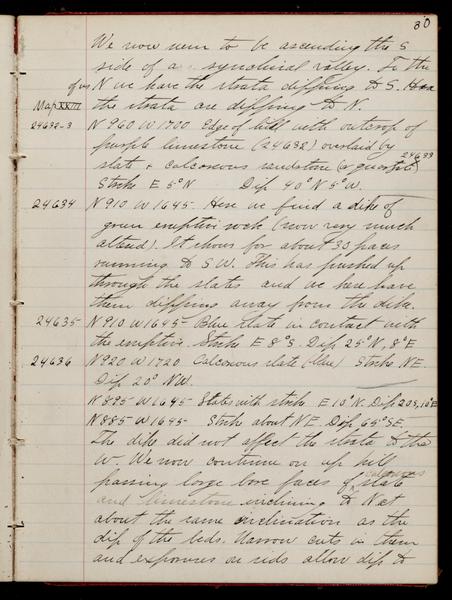 30
We now seem to be ascending the S
side of a synclinal valley. To the
N of us we have the strata dipping to S. Here
the strata are dipping to N.
Map XXIII
24632-3 N 960 W 1700 Edge of hill with outcrop of
purple limestone (24632) overlaid by
slate & calcareous sandstone (or quartzite) 24633
Strike E 5° N Dip 40° N 5° W.
24634 N 910 W 1645- Here we find a dike of
green eruptive rock (now very much
altered). It shows for about 30 paces
running to S.W. This has pushed up
through the slates and we here have
them dipping away from the dike.
24635- N 910 W 1645- Blue slate in contact with
the eruptive. Strike E 8° S. Dip 25° N, 8° E
24636 N 920 W 1720 Calcareous slate (blue) Strike NE.
Dip 20° NW.
N 895 W 1645- Slates with strike E 10° N. Dip 20 S, 10° E
N 885 W 1645- Strike about NE Dip 65° SE.
The dike did not affect the strata to the
W. We now continue on up hill
passing large bare faces of calcareous slate
and limestone inclining to N at
about the same inclination as the
dip of the beds. Narrow cuts in them
and exposures on sides allow dip to